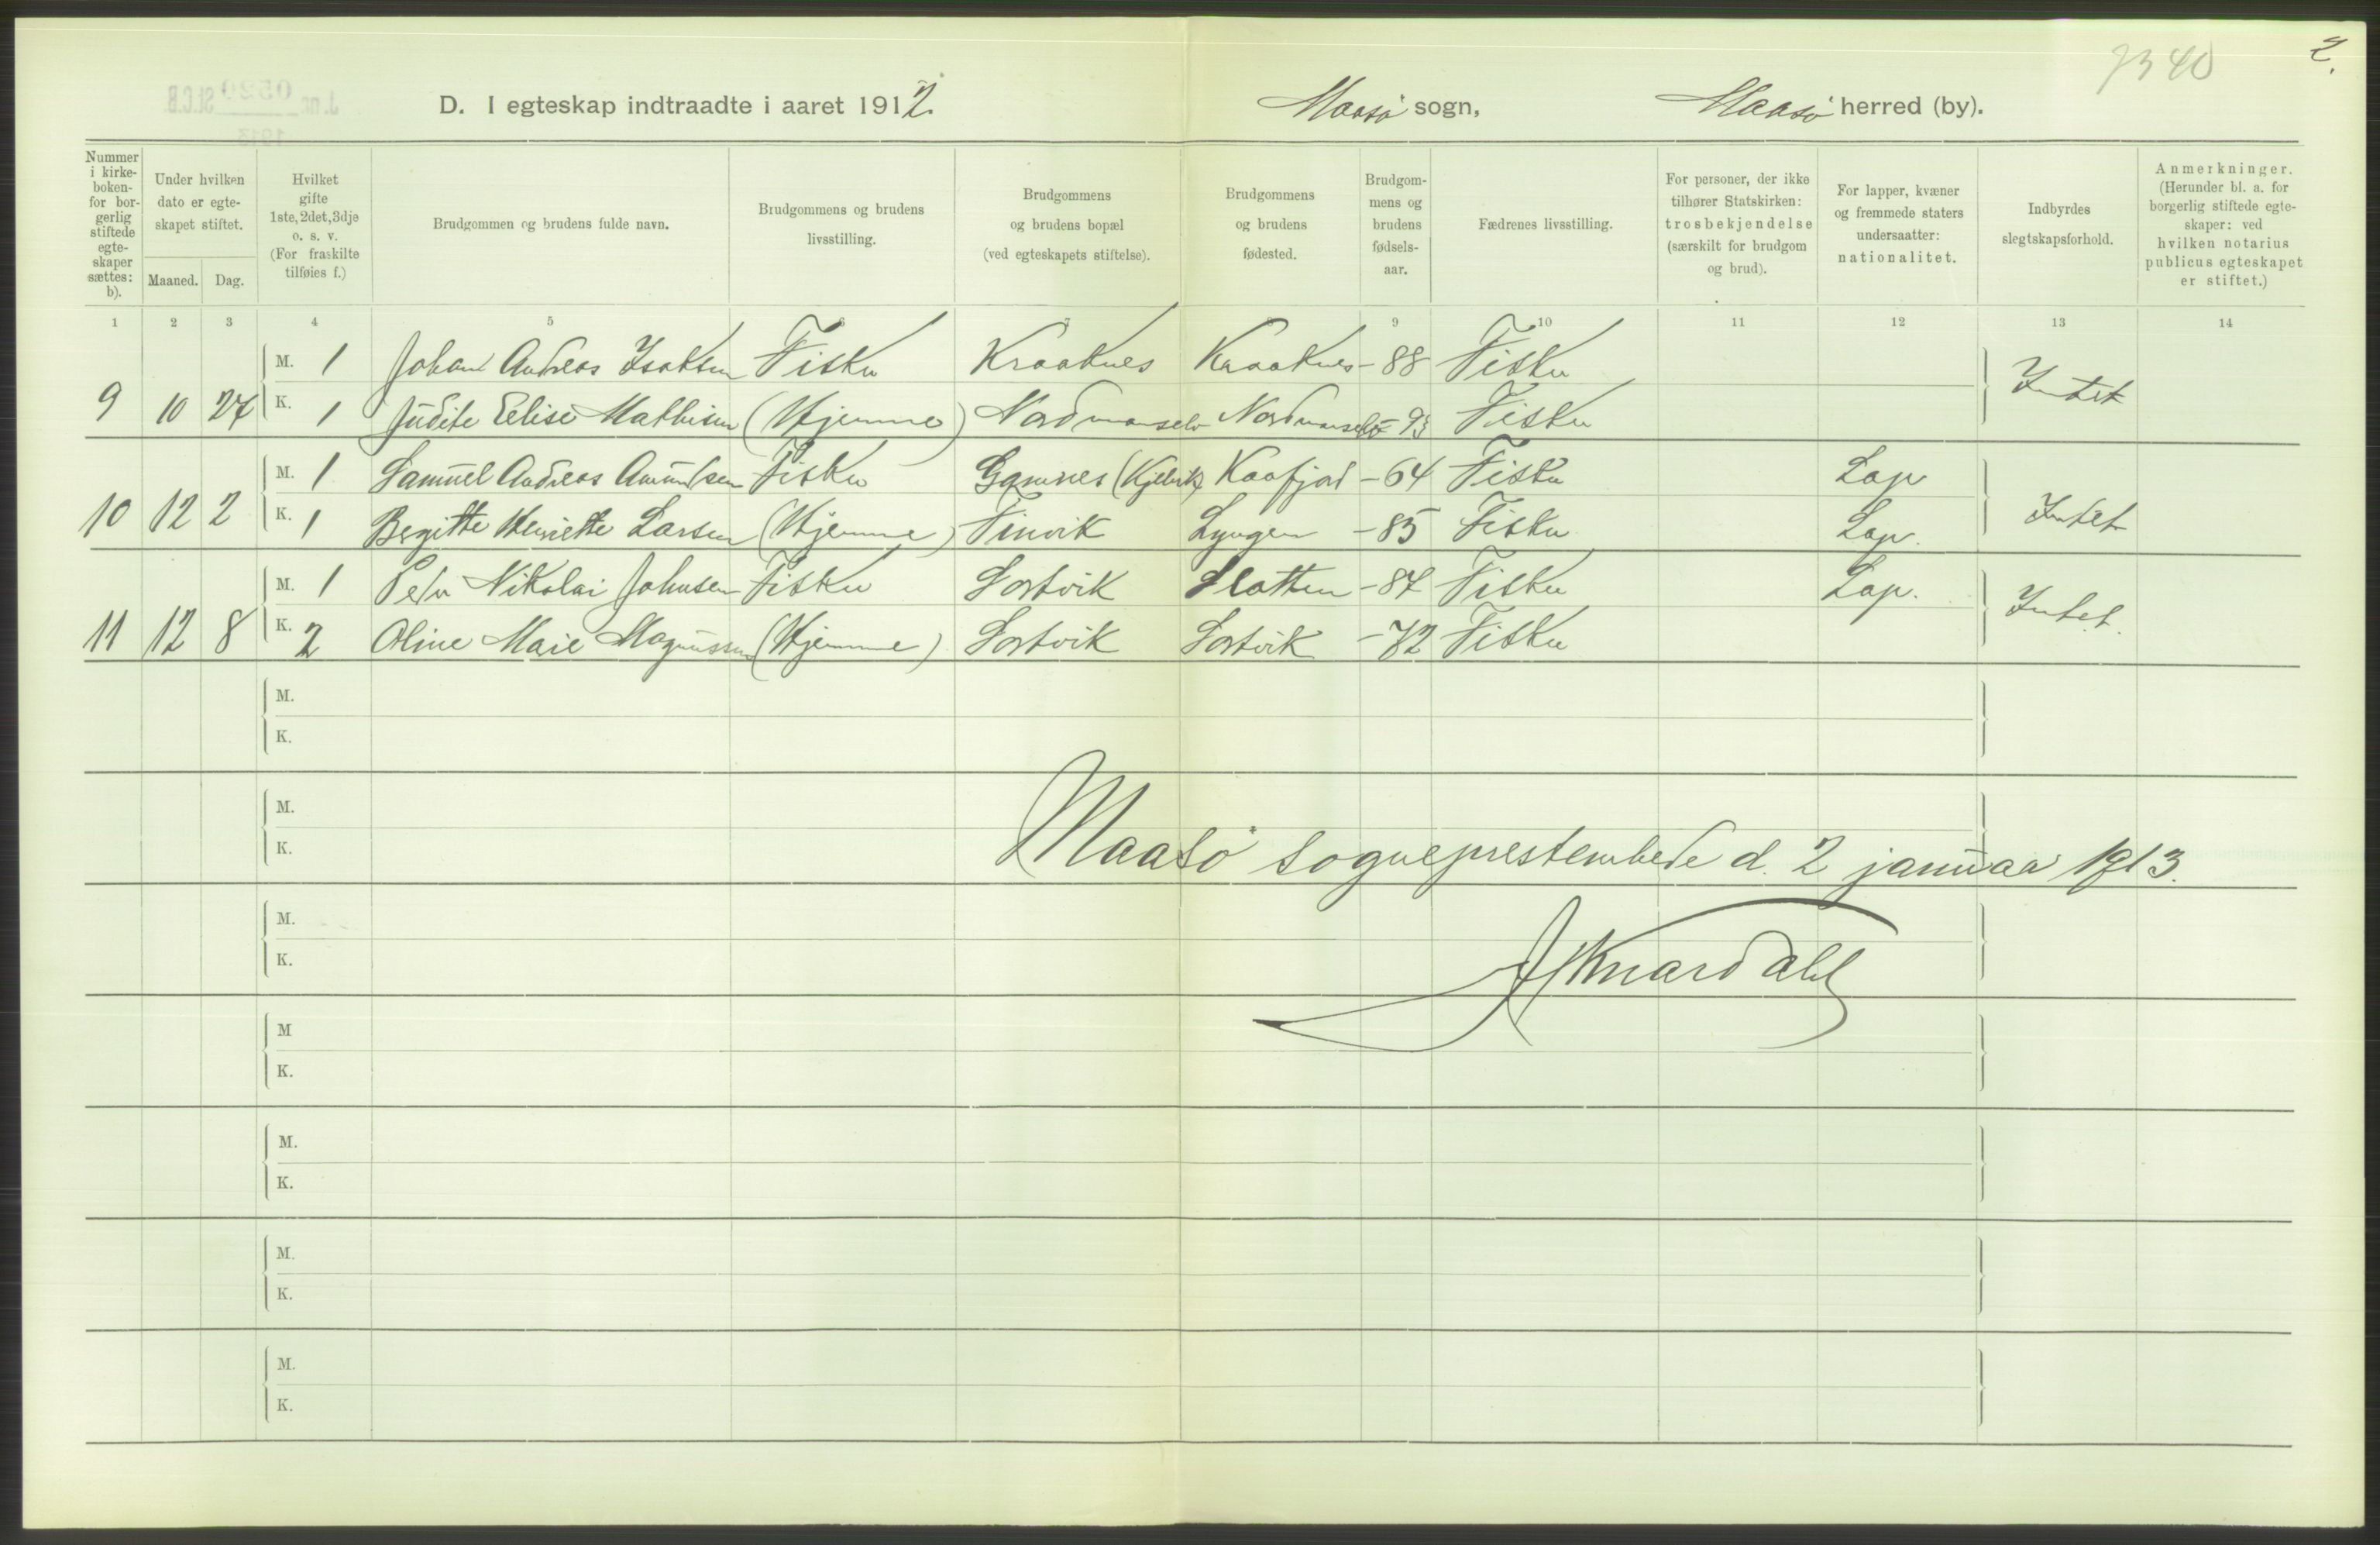 7340
2.
D. I egteskap indtraadte i aaret 1912 Maasø sogn, Maasø herred (by).
Nummer i kirkeboken- for borgerlig stiftede egteskaper sættes: b).
Under hvilken dato er egteskapet stiftet.
Maaned. Dag.
Hvilket gifte 1ste, 2det, 3dje o. s. v. (For fraskilte tilføies f.)
Brudgommen og brudens fulde navn.
Brudgommens og brudens livsstilling.
Brudgommens og brudens bopæl (ved egteskapets stiftelse).
Brudgommens og brudens fødested.
Brudgommens og brudens fødselsaar.
Fædrenes livsstilling.
For personer, der ikke tilhører Statskirken: trosbekjendelse (særskilt for brudgom og brud).
For lapper, kvæner og fremmede staters undersaatter: nationalitet.
Indbyrdes slegtskapsforhold.
Anmerkninger. (Herunder bl. a. for borgerlig stiftede egteskaper: ved hvilken notarius publicus egteskapet er stiftet.)
1 2 3 4 5 6 7 8 9 10 11 12 13 14
M. 1 Johan Andreas Isaksen Fisker Kraaknes Kraaknes -88 Fisker
9 10 27 K. 1 Judite Elise Mathisen (Hjemme) Nordmanselv Nordmanselv -93 Fisker Intet
M. 1 Samuel Andreas Amundsen Fisker Gamnes (Kjelvik) Kaafjord -64 Fisker Lap
10 12 2 K. 1 Bergitte Henriette Larsen (Hjemme) Finvik Lyngen -85 Fisker Lap. Intet
M. 1 Peder Nikolai Johnsen Fisker Sortvik Slotten -87 Fisker Lap.
11 12 8 K. 2 Oline Marie Magnussen (Hjemme) Sortvik Sortvik -72 Fisker Intet.
M.
K.
M.
K.
Maasø sogneprestembede d. 2 januar 1913.
M.
K.
M
K.
M.
K.
M.
K.
M.
K.